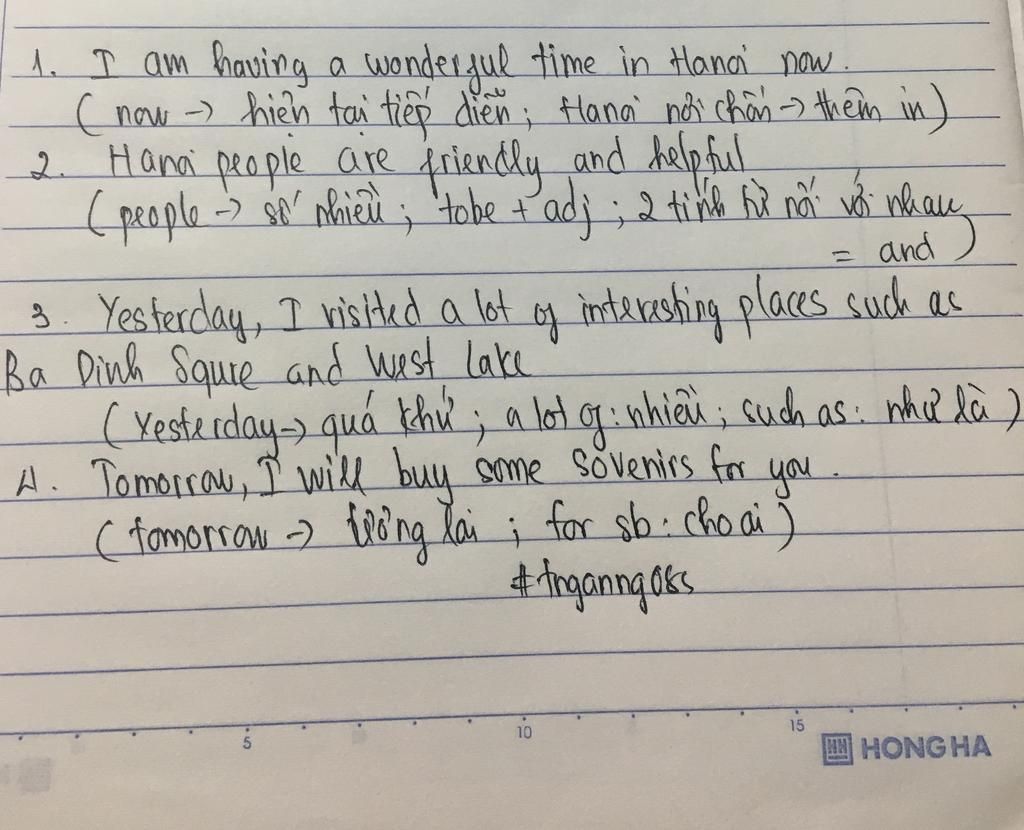 1. I am having a wonderful time in Hanoi now.
(now → hiện tại tiếp diễn; Hanoi nơi chốn → thêm in)
2. Hanoi people are friendly and helpful
(people → số nhiều; tobe + adj; 2 tính từ nối với nhau
= and)
3. Yesterday, I visited a lot of interesting places such as
Ba Dinh Squre and West Lake
(Yesterday → quá khứ; a lot of: nhiều; such as: như là)
4. Tomorrow, I will buy some sovenirs for you.
(tomorrow → tương lai; for sb: cho ai)
5 10 15
HONG HA